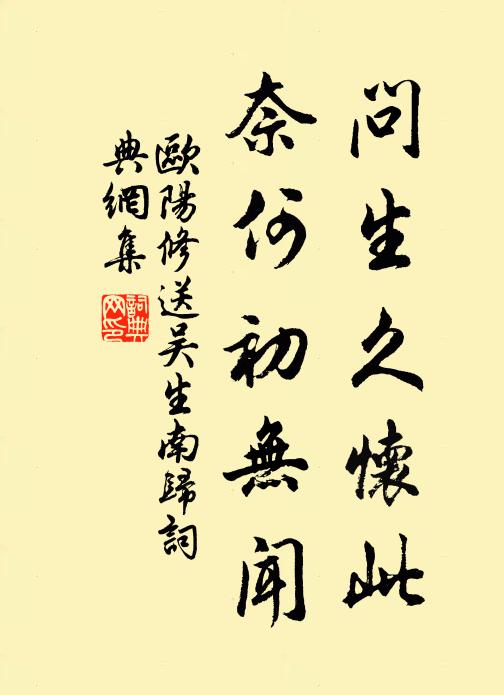 問生久懷此
奈何初無聞
歐陽修送吳生南歸詞
典網集
詞典
网印